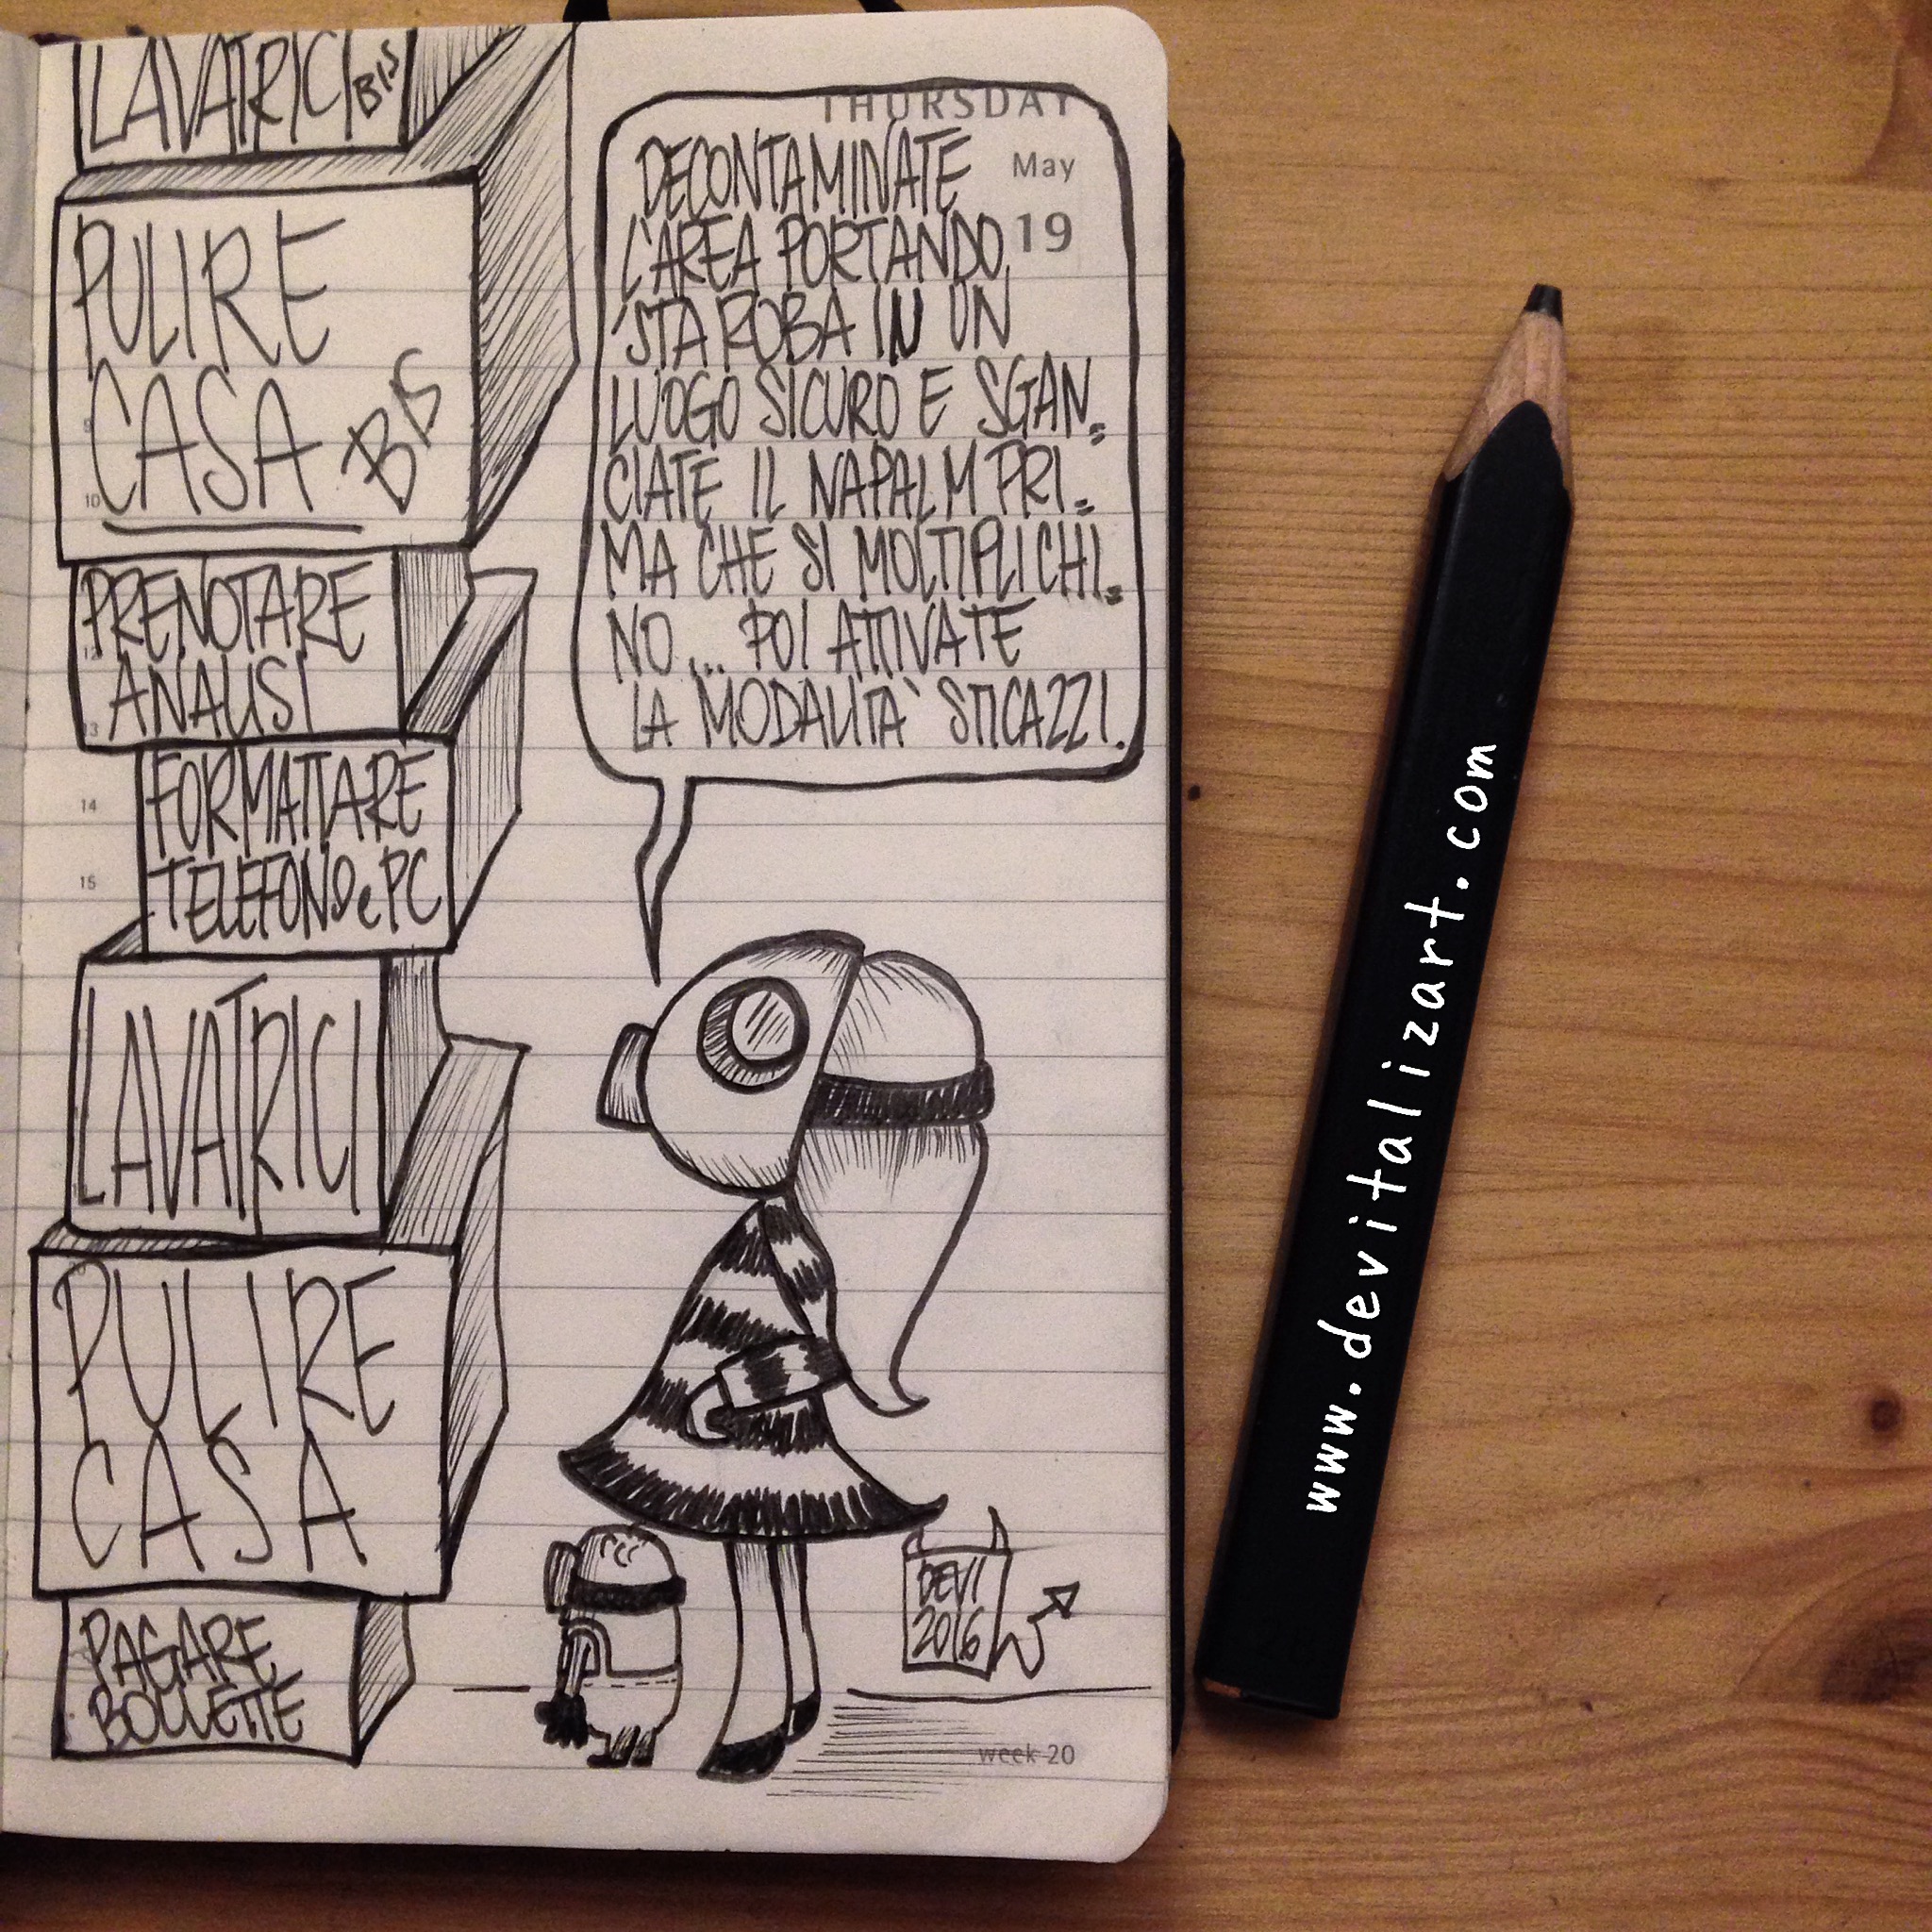 LAVATRICI BIS
PULIRE
CASA BIS
PRENOTARE
ANALISI
FORMATTARE
TELEFONO e PC
LAVATRICI
PULIRE
CASA
PAGARE
BOLLETTE
THURSDAY
May
19
DECONTAMINATE
L'AREA PORTANDO
'STA ROBA IN UN
LUOGO SICURO E SGAN=
CIATE IL NAPALM PRI=
MA CHE SI MOLTIPLICHI=
NO... POI ATTIVATE
LA MODALITA' STICAZZI.
10
12
13
14
15
DEVI
2016
week 20
www.devitalizart.com